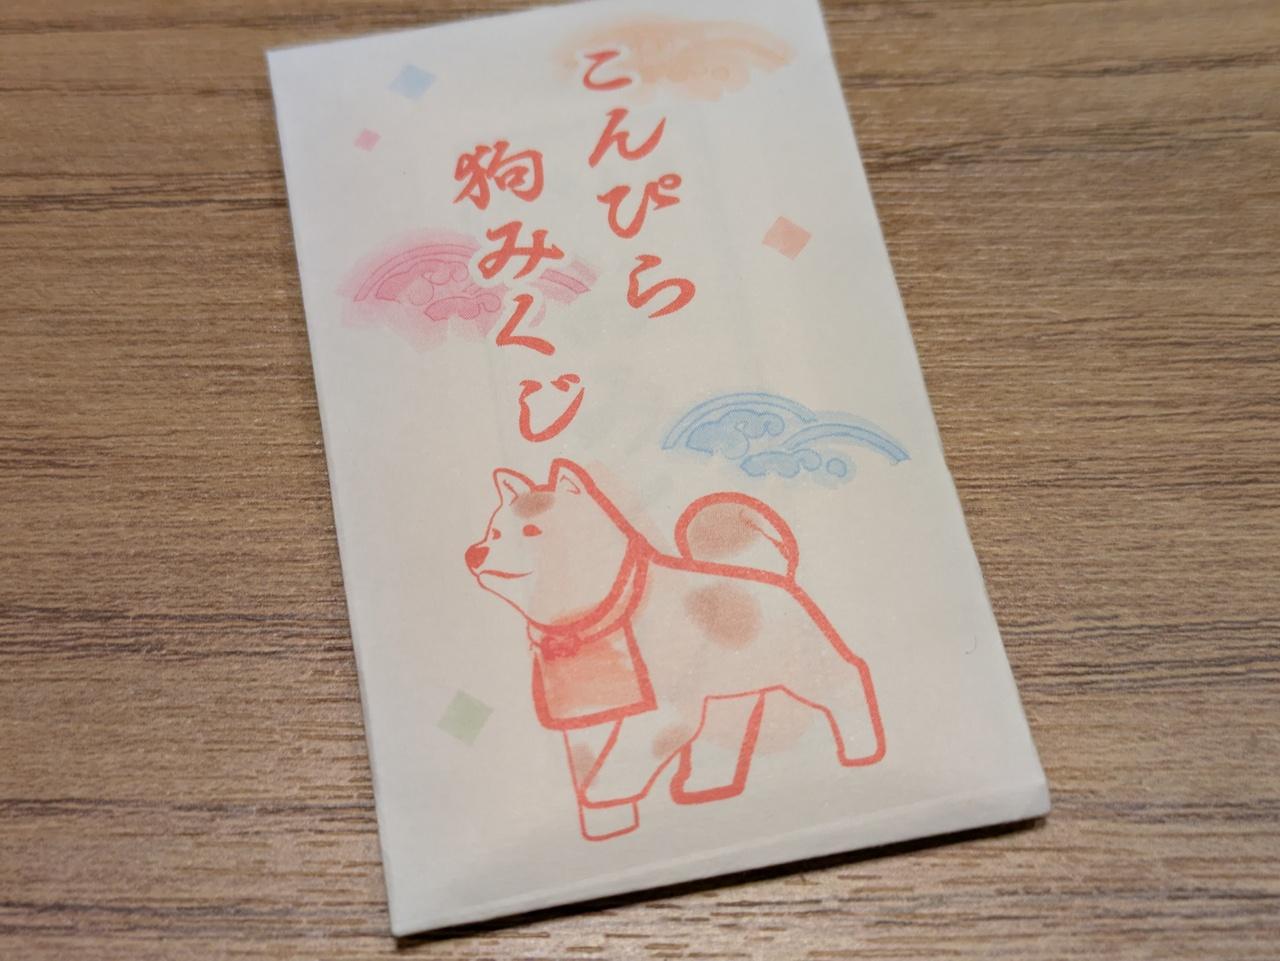 こんぴら
狗みくじ